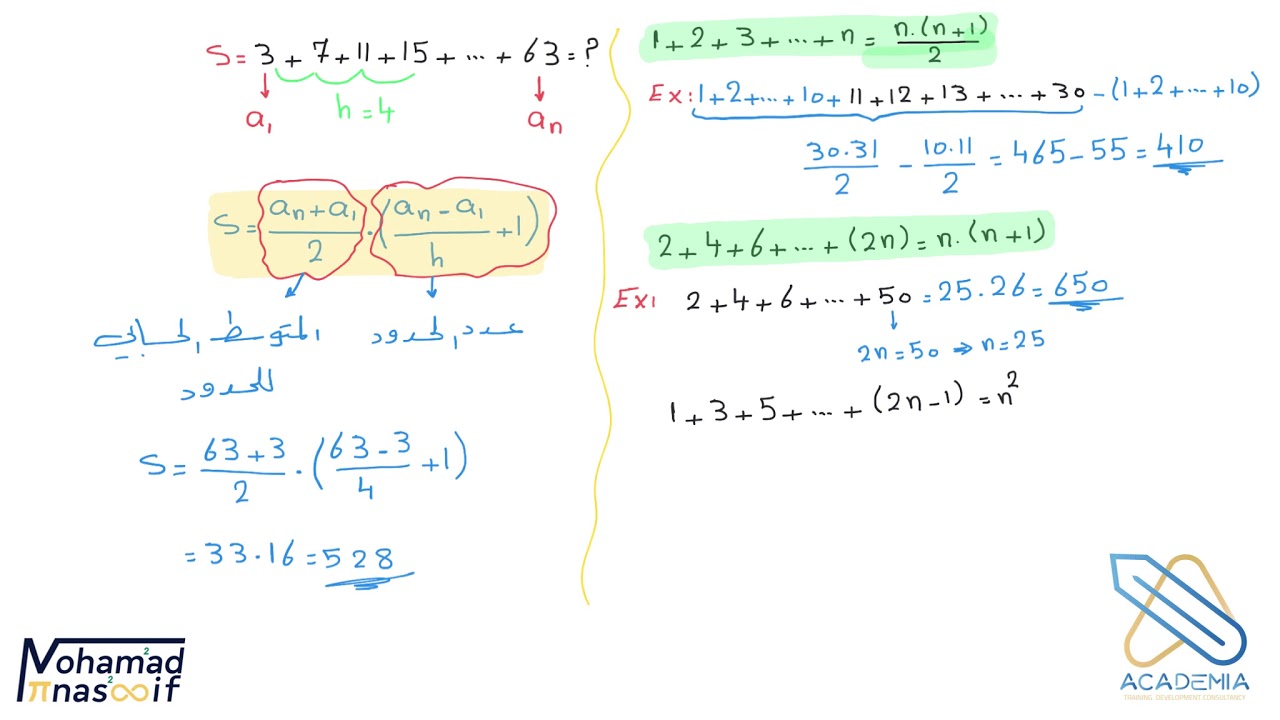 S = 3 + 7 + 11 + 15 + ... + 63 = ?
h = 4
a₁
aₙ
S = (aₙ + a₁)/2 . ((aₙ - a₁)/h + 1)
المتوسط الحسابي
للحدود
عدد الحدود
S = (63 + 3)/2 . ((63 - 3)/4 + 1)
= 33 . 16 = 528
1 + 2 + 3 + ... + n = n.(n+1)/2
Ex: 1 + 2 + ... + 10 + 11 + 12 + 13 + ... + 30 - (1 + 2 + ... + 10)
30.31/2 - 10.11/2 = 465 - 55 = 410
2 + 4 + 6 + ... + (2n) = n.(n+1)
Ex: 2 + 4 + 6 + ... + 50 = 25.26 = 650
2n = 50 ⇒ n = 25
1 + 3 + 5 + ... + (2n - 1) = n²
Moham²ad
πnas²∞if
ACADEMIA
TRAINING DEVELOPMENT CONSULTANCY